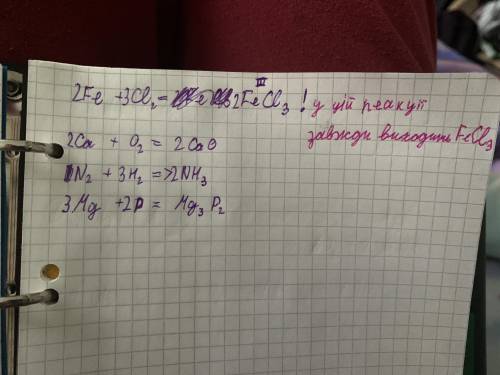 2Fe + 3Cl₂ = 2FeCl₃ ! у цій реакції
III
завжди виходить FeCl₃
2Ca + O₂ = 2CaO
1N₂ + 3H₂ => 2NH₃
3Mg + 2P = Mg₃P₂